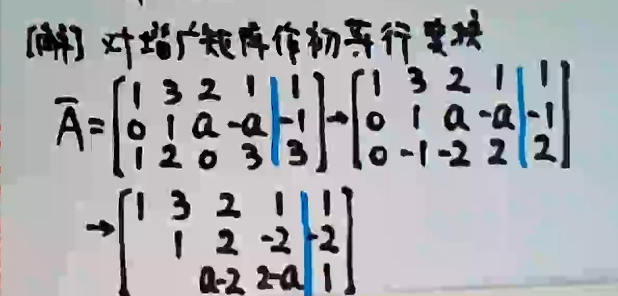 [解] 对增广矩阵作初等行变换
Ā = [1 3 2 1 | 1; 0 1 a -a | -1; 1 2 0 3 | 3] → [1 3 2 1 | 1; 0 1 a -a | -1; 0 -1 -2 2 | 2]
→ [1 3 2 1 | 1; 1 2 -2 | -2; a-2 2-a | 1]